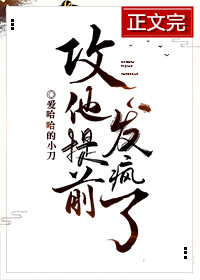 正文完
攻他提前
发疯了
◎爱哈哈的小刀